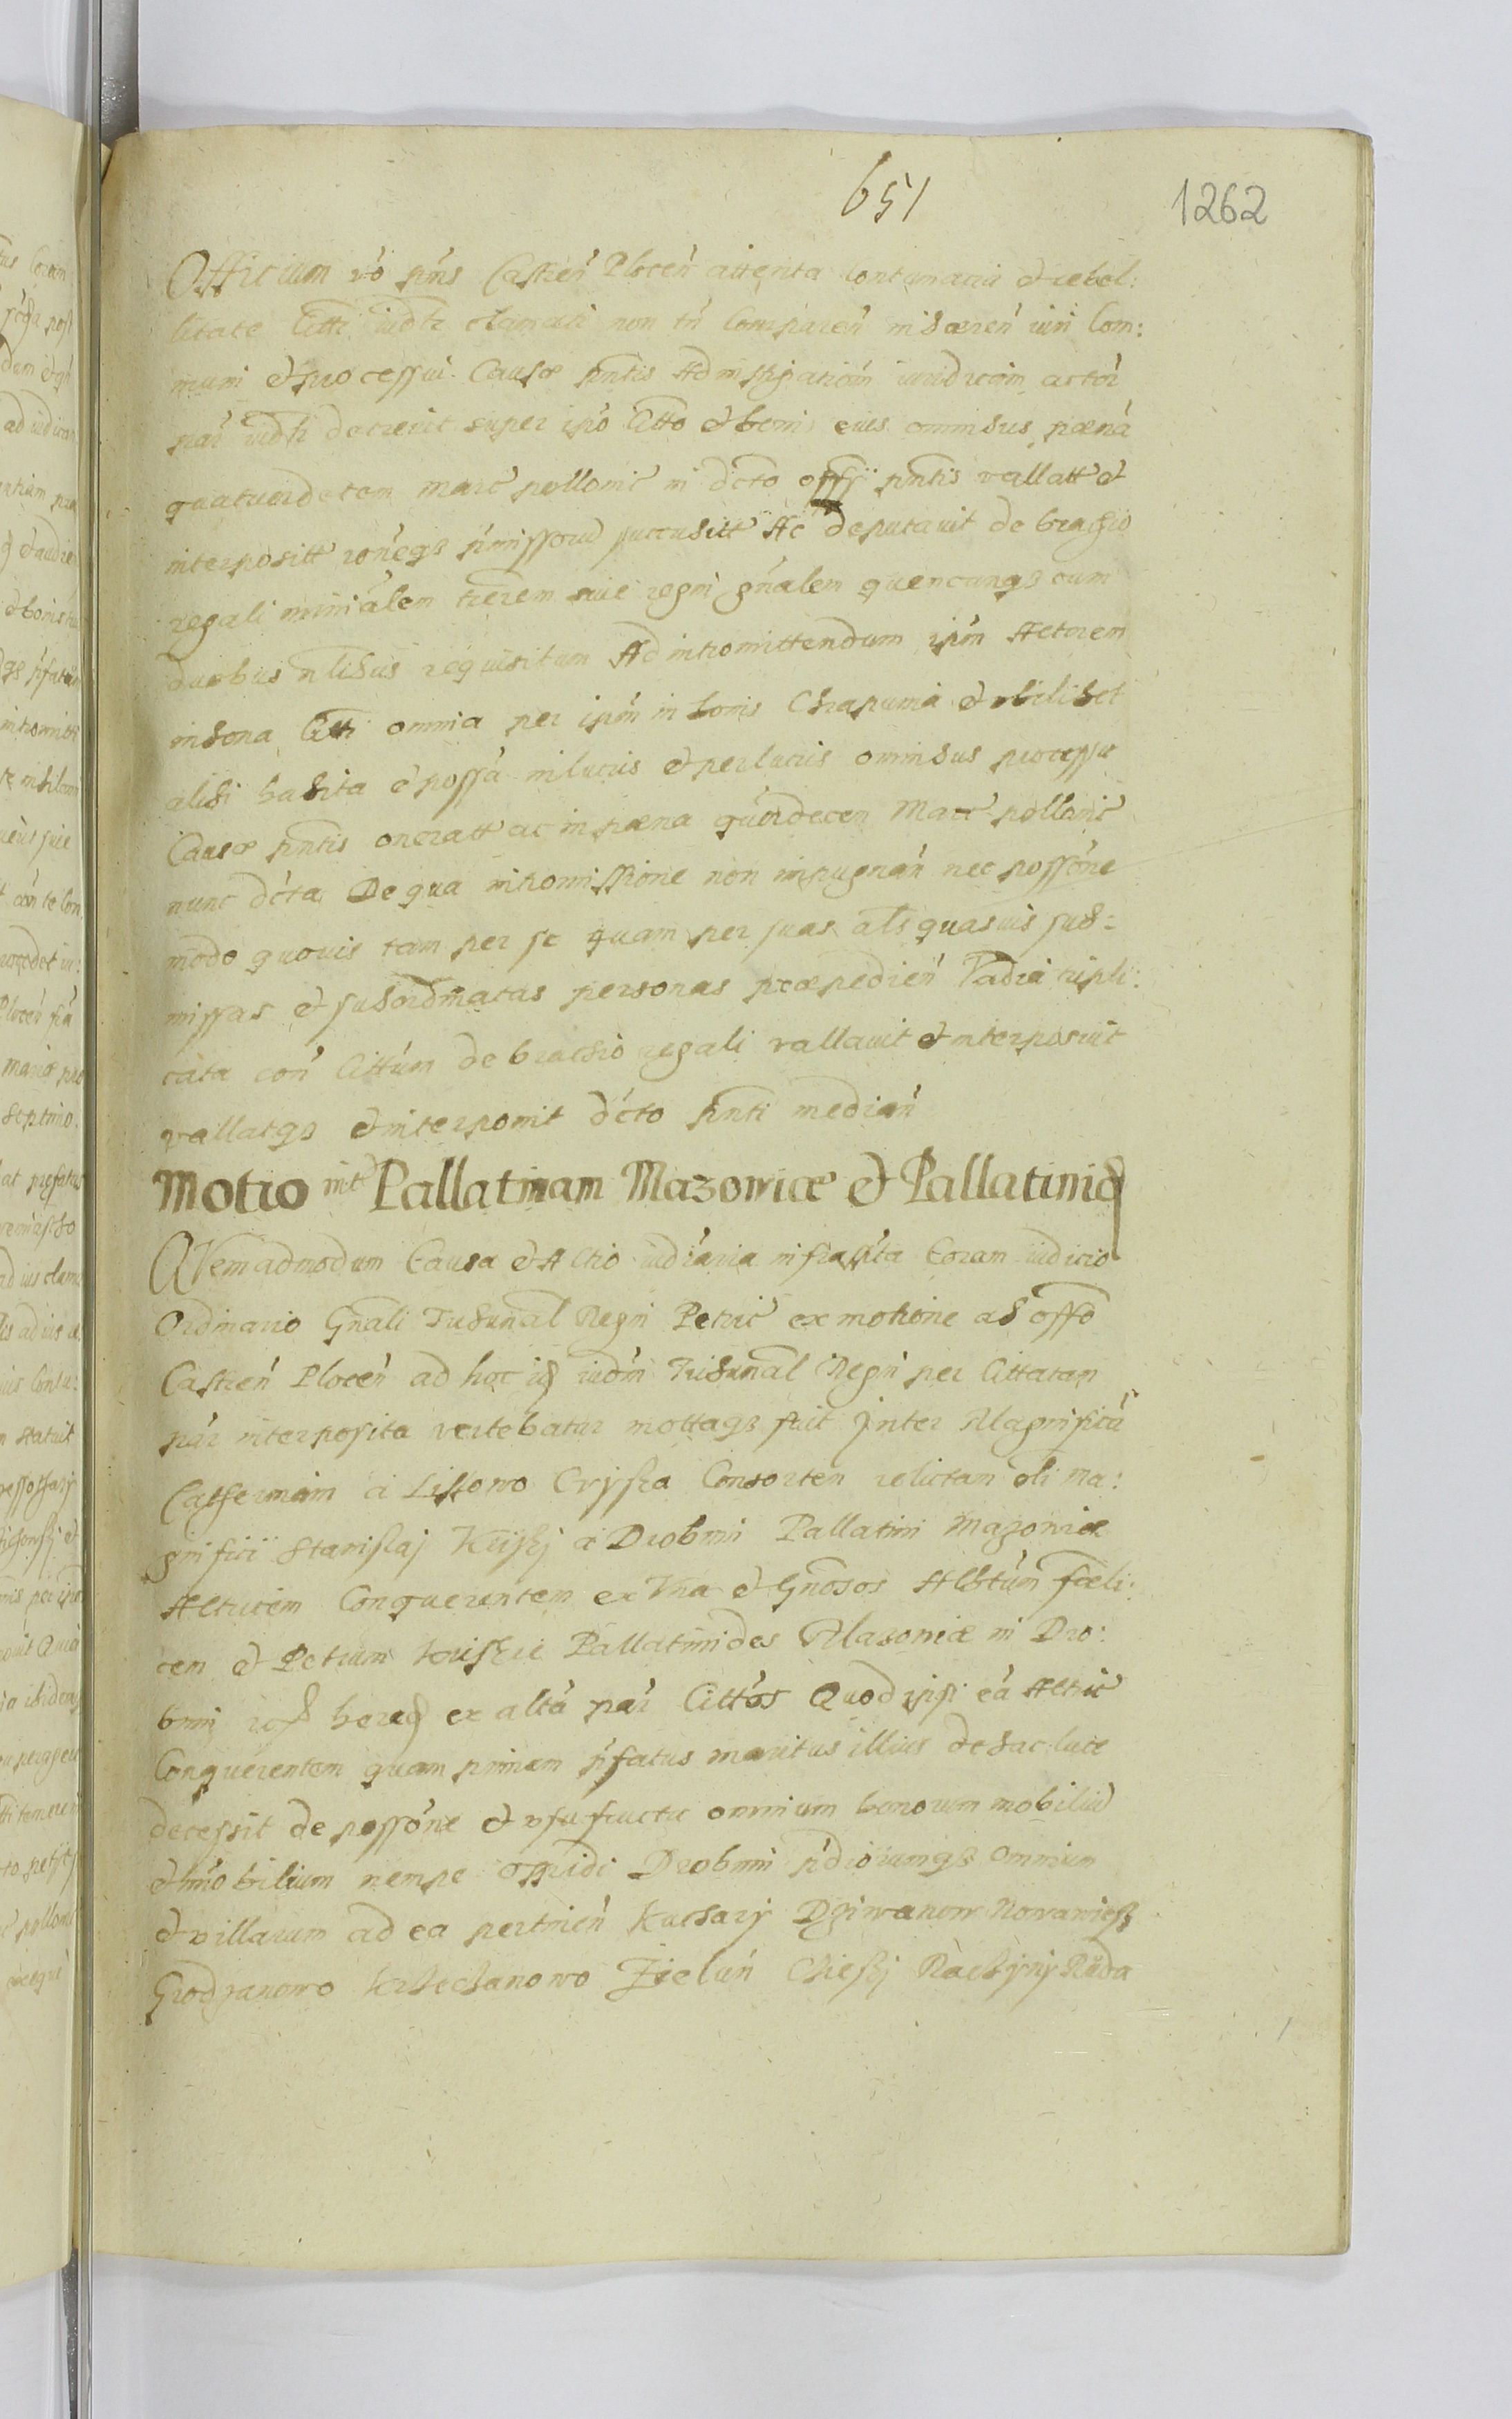 651
1262
Officium vo pn̄s Castren̄ Plocen̄ attenta contumacia et rebel:
litate Citti iudtr clamati non tn̄ Comparen̄ nisaeren̄ iuri Com:
muni et processui Causæ pn̄tis Ad
par iudtr decrevit super ipō Citto et boni eius omnibus pœna
quatuordecem marc pollonic in dicto officii pn̄tis vallatt et
interpositt roneqз p̄missorū succubitt Ac deputavit de brachio
regali miniālem trerem sive regni gn̄alem quencunqз cum
duobus n̄libus requisitum Ad intromittendum ipm̄ Actorem
in bona Citti omnia per ipm̄ in bonis Chapunia et ubilibet
alibi habita et possā in lucris et perlucris omnibus processu
Causæ pn̄tis oneratt ac in pœna qūordecem Marc pollonic
nunc dc̄ta De qua intromissione non inpugnan̄ nec possōne
modo quovis tam per se quam per suas als quasvis sub:
missas et subordinatas personas præpedien̄ Vadia tripli:
cata con̄ Cittum de brachio regali vallavit et interposuit
vallatqз et interponit dc̄to pn̄ti median̄
Motio int Pallatinam Mazoviæ et Pallatinid
QVemadmodum Causa et Actio iudiaria infrascp̄ta Coram iudicio
Ordinario Gn̄ali Tribunal Regni Petric ex motione ab offo
Castren̄ Plocen̄ ad hoc id iudm̄ Tribunal Regn̄ per Cittatam
par interposita vertebatur mottaqз fuit Inter Magnificā
Catherinam a Lissowo Cryska Consortem relictam oli ma:
gnificii Stanislaj Kriskj a Drobnin Pallatini Mazoviæ
Actricem Conquerentem ex Vna et Gn̄osos Albtūm fœli:
cem et Petrum Kriskie Pallatinides Mazoviæ in Dro:
bnin hered ex altā par Cittos Quod ipsi eā Actric
Conquerentem quam primum p̄fatus maritus illius de hac luce
decessit de possōne et usufructu omnium bonorum mobiliū
et im̄obilium nempe oppidi Drobnin p̄dioiumqз omnium
et villarum ad ea pertinen̄ Kucharij Dziwanow Nowawieß
Grodzanowo Krzechanowo Zielun̄ Chieskj Raczÿnij Ruda